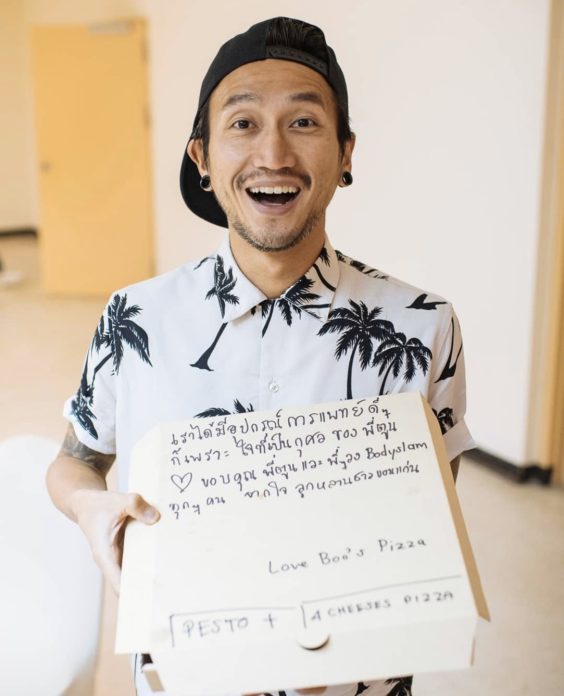 เราได้มีอุปกรณ์การแพทย์ดีๆ
ก็เพราะใจที่เป็นกุศล ของ พี่ตูน
♡ ขอบคุณ พี่ตูน และ พี่ๆวง Bodyslam
ทุกๆ คน จากใจ ลูกหลานชาวขอนแก่น
Love Boo's Pizza
PESTO + 4 CHEESES PIZZA